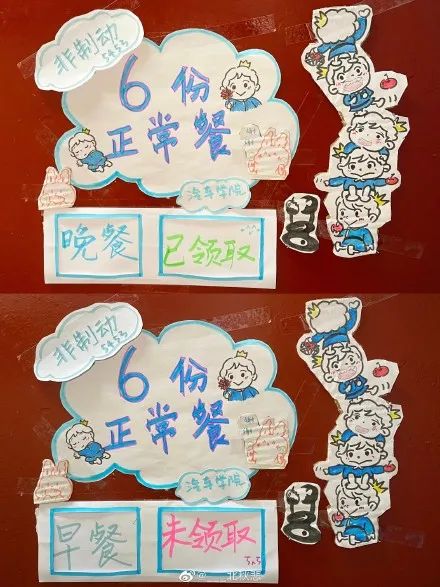 非制动
5253
6份
正常餐
汽车学院
晚餐
已领取
非制动
5253
6份
正常餐
汽车学院
早餐
未领取